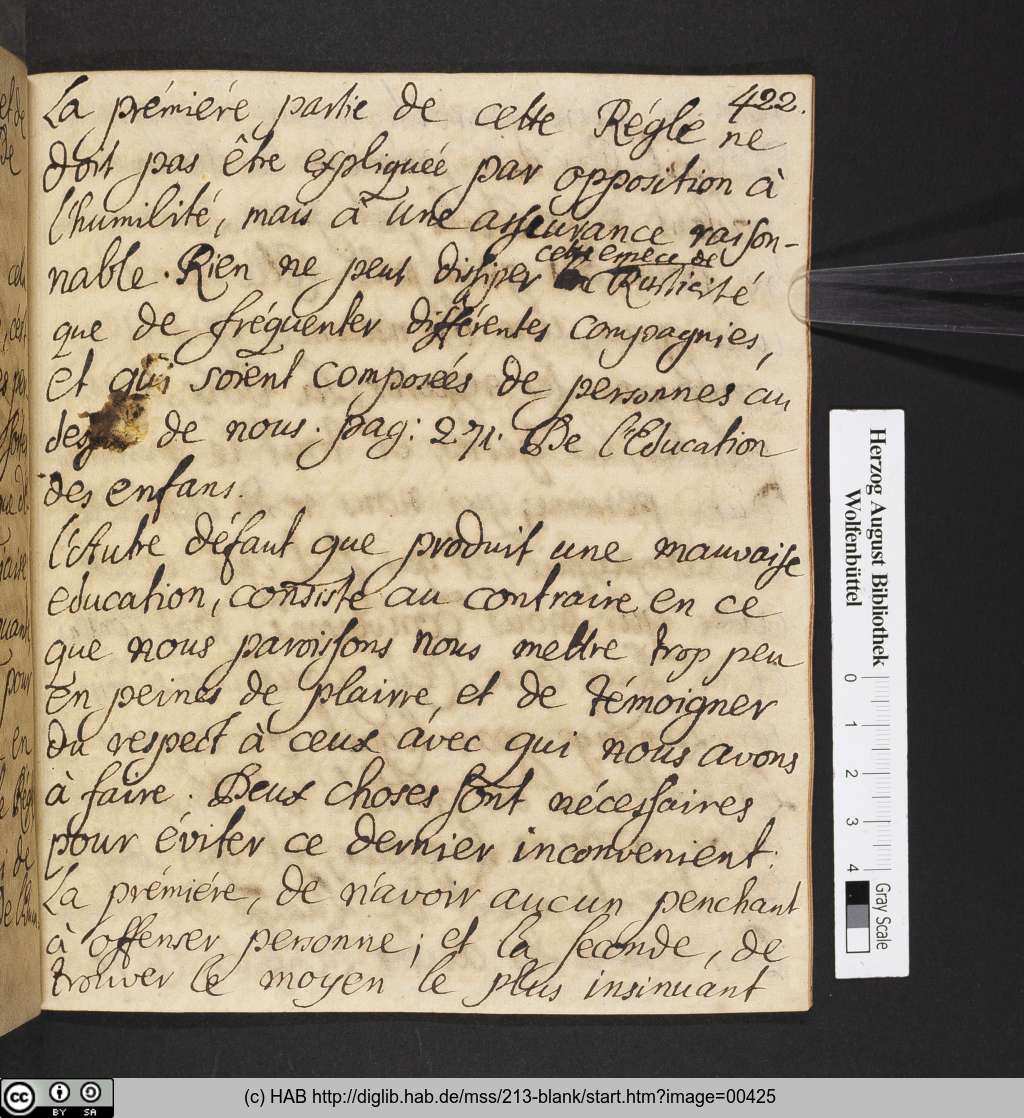 422.
La prémiére partie de cette Régle ne
doit pas être expliqueé par opposition à
l'humilité, mais à une asseurance raison-
nable. Rien ne peut dissiper cette espece de Rusticité
que de fréquenter différentes compagnies,
et qui soient composeés de personnes au
de nous. pag: 271. De l'Education
des enfans.
l'Autre défaut que produit une mauvaise
education, consiste au contraire en ce
que nous paroissons nous mettre trop peu
en peines de plairre, et de témoigner
du respect à ceux avec qui nous avons
à faire. Deux choses sont nécessaires
pour éviter ce dernier inconvenient.
La prémiére, de n'avoir aucun penchant
à offenser personne; et la seconde, de
trouver le moyen le plus insinuant
Herzog August Bibliothek
Wolfenbüttel
0 1 2 3 4
Gray Scale
cc BY SA
(c) HAB http://diglib.hab.de/mss/213-blank/start.htm?image=00425